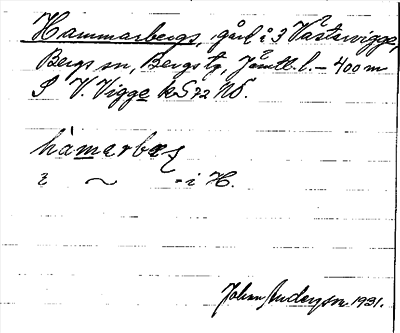 Hammarbergs, gård å 3 Västervigge,
Bergs sn, Bergs tg, Jämtl. l. – 400 m
S V. Vigge k S 72 NÖ.
hàmarbæs
~ -i H.
Johan Anderson 1931.